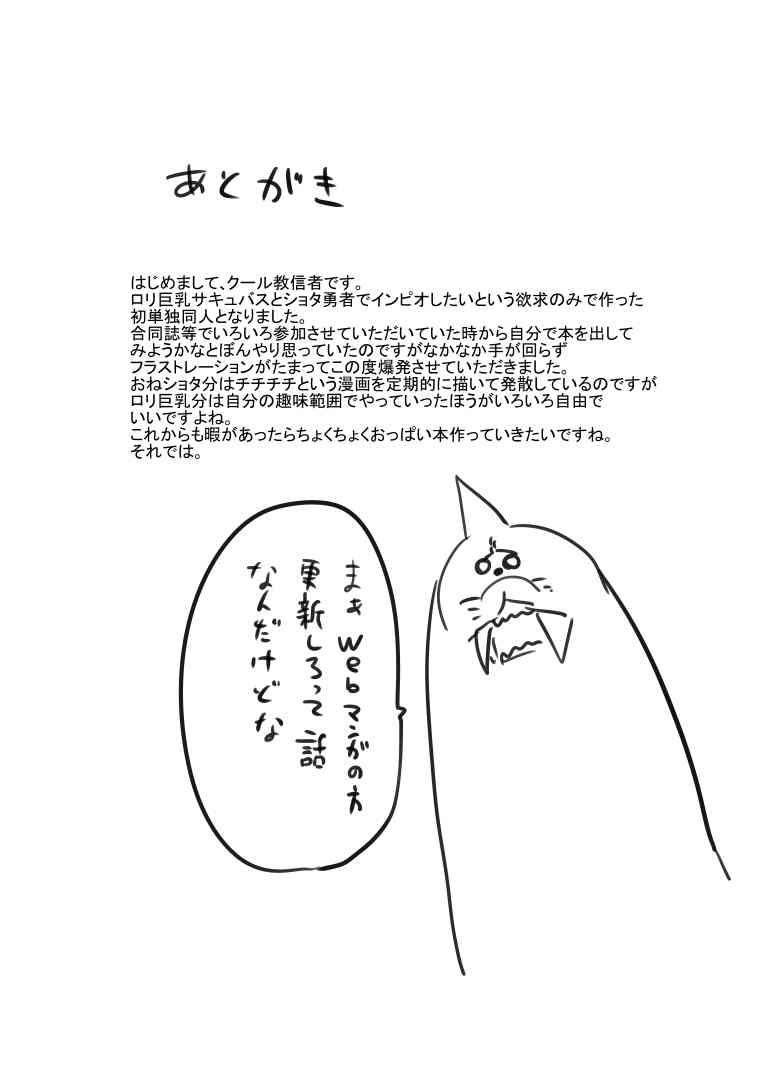 あとがき
はじめまして、クール教信者です。
ロリ巨乳サキュバスとショタ勇者でインピオしたいという欲求のみで作った
初単独同人となりました。
合同誌等でいろいろ参加させていただいていた時から自分で本を出して
みようかなとぼんやり思っていたのですがなかなか手が回らず
フラストレーションがたまってこの度爆発させていただきました。
おねショタ分はチチチチという漫画を定期的に描いて発散しているのですが
ロリ巨乳分は自分の趣味範囲でやっていったほうがいろいろ自由で
いいですよね。
これからも暇があったらちょくちょくおっぱい本作っていきたいですね。
それでは。
まぁwebマンガの方
更新しろって話
なんだけどな